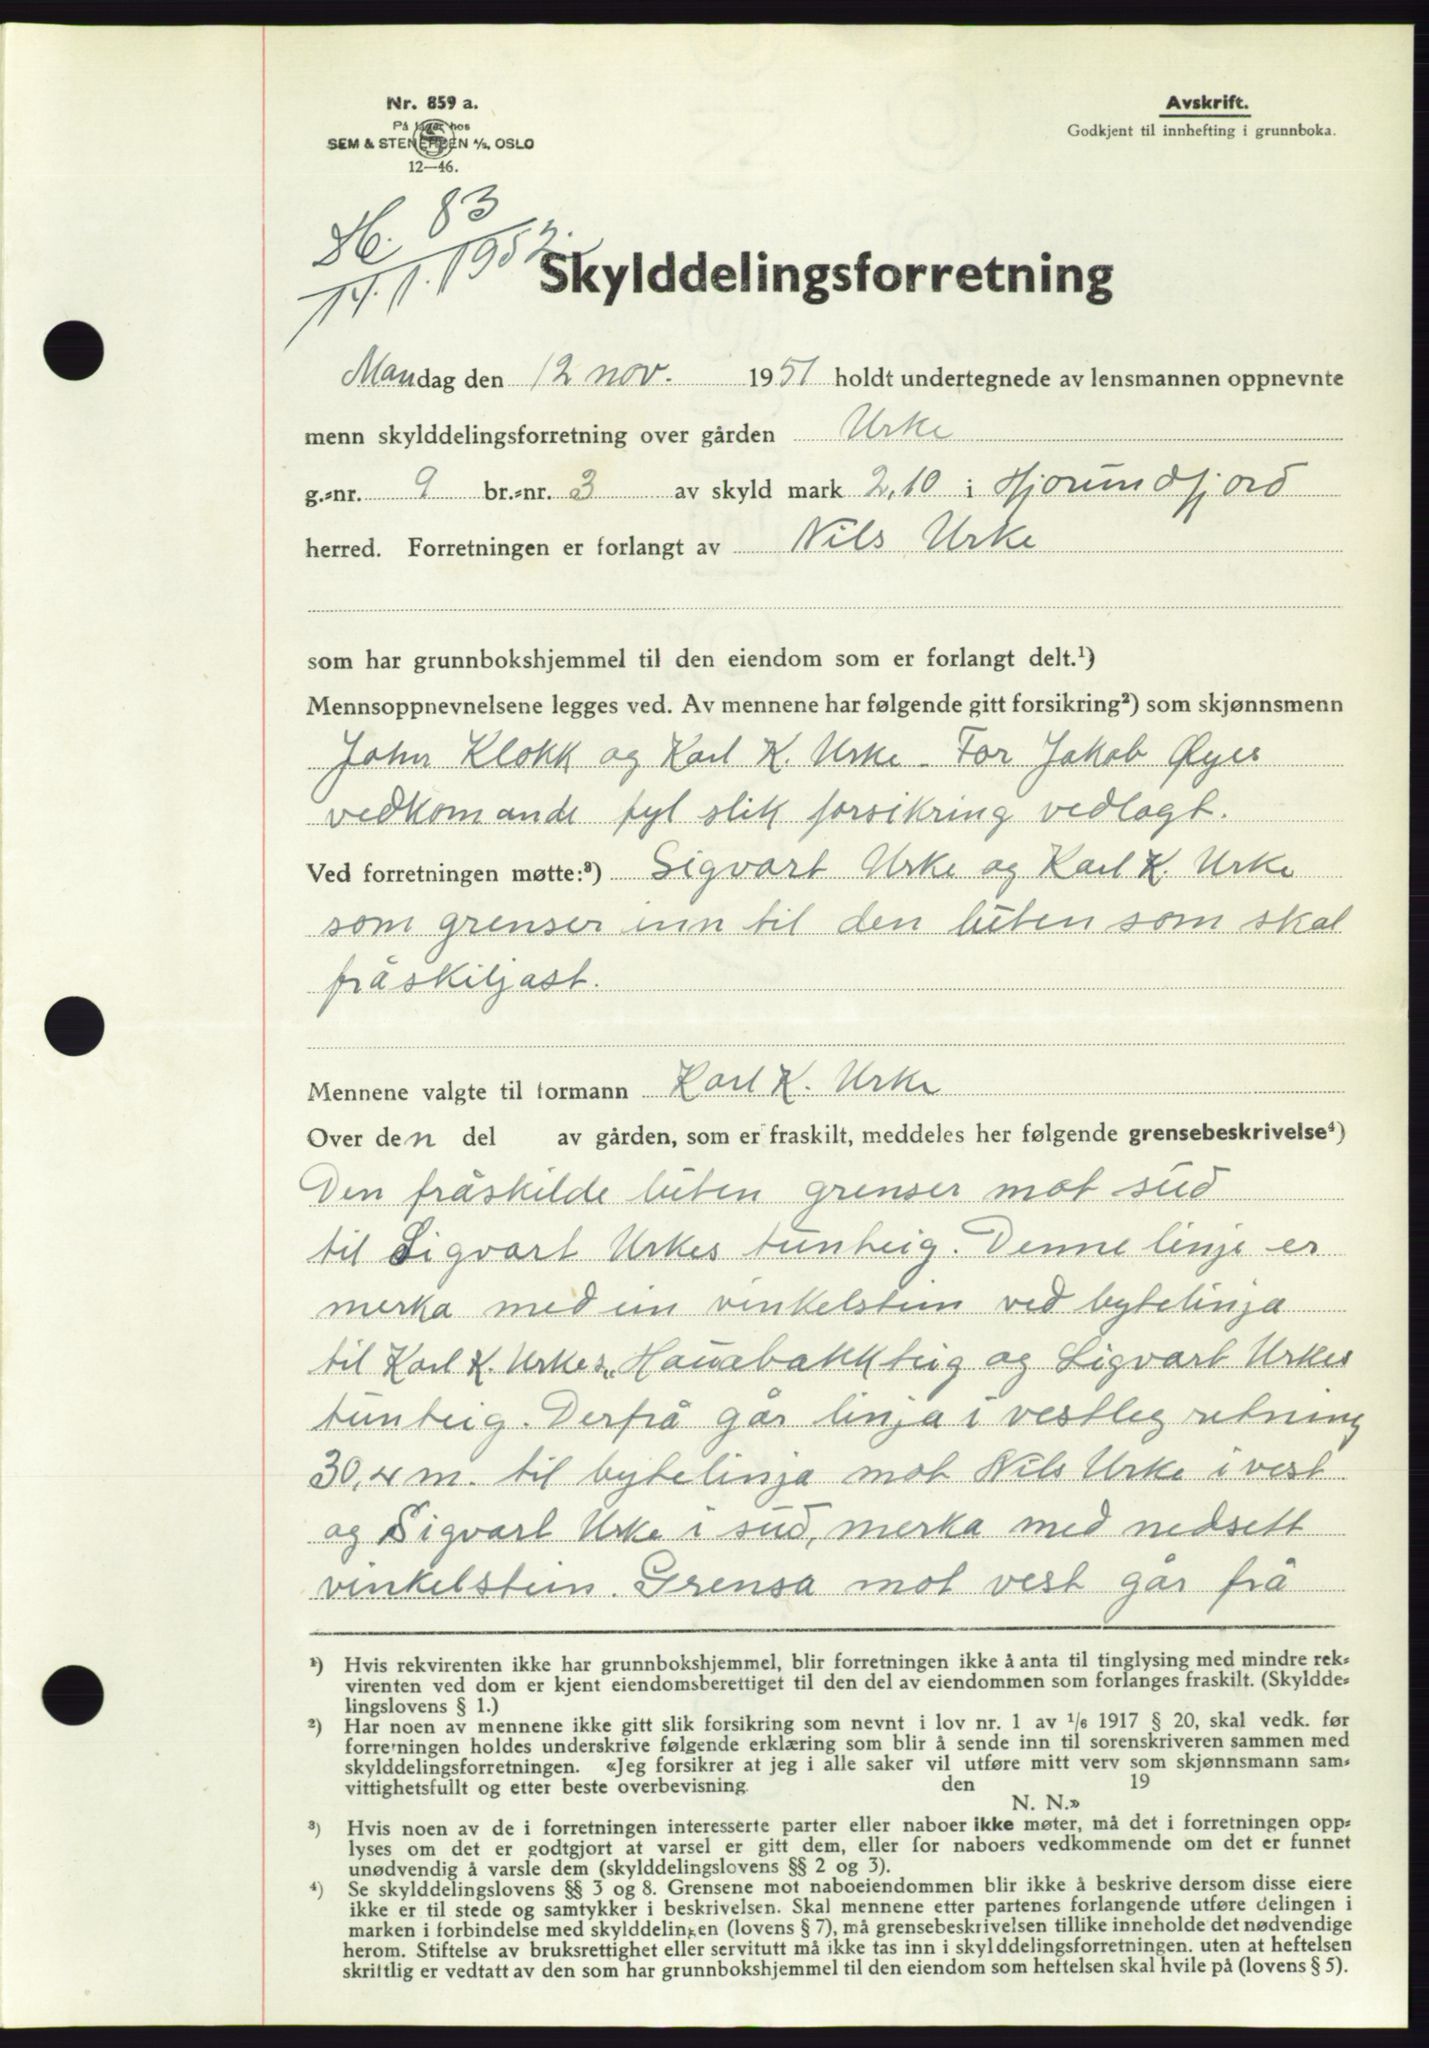 Nr. 859 a.
På lager hos
SEM & STENERSEN A/S, OSLO
12—46.
Avskrift.
Godkjent til innhefting i grunnboka.
83
14.1.1952.
Skylddelingsforretning
Mandag den 12 nov. 1951 holdt undertegnede av lensmannen oppnevnte
menn skylddelingsforretning over gården Urke
g.=nr. 9 br.=nr. 3 av skyld mark 2,10 i Hjørundfjord
herred. Forretningen er forlangt av Nils Urke
som har grunnbokshjemmel til den eiendom som er forlangt delt.¹)
Mennsoppnevnelsene legges ved. Av mennene har følgende gitt forsikring²) som skjønnsmenn
John Klokk og Karl K. Urke. For Jakob Øyes
vedkomande fyl slik forsikring vedlagt.
Ved forretningen møtte:³) Sigvart Urke og Karl K. Urke
som grenser inn til den luten som skal
fråskiljast.
Mennene valgte til formann Karl K. Urke
Over den del av gården, som er fraskilt, meddeles her følgende grensebeskrivelse⁴)
Den fråskilde luten grenser mot sud
til Sigvart Urkes tunteig. Denne linje er
merka med ein vinkelstein ved bytelinja
til Karl K. Urkes „Hauabakkteig og Sigvart Urkes
tunteig. Derfrå går linja i vestleg retning
30,4 m. til bytelinja mot Nils Urke i vest
og Sigvart Urke i sud, merka med nedsett
vinkelstein. Grensa mot vest går frå
¹) Hvis rekvirenten ikke har grunnbokshjemmel, blir forretningen ikke å anta til tinglysing med mindre rek=
virenten ved dom er kjent eiendomsberettiget til den del av eiendommen som forlanges fraskilt. (Skyldde=
lingslovens § 1.)
²) Har noen av mennene ikke gitt slik forsikring som nevnt i lov nr. 1 av 1/6 1917 § 20, skal vedk. før
forretningen holdes underskrive følgende erklæring som blir å sende inn til sorenskriveren sammen med
skylddelingsforretningen. «Jeg forsikrer at jeg i alle saker vil utføre mitt verv som skjønnsmann sam=
vittighetsfullt og etter beste overbevisning. den 19
N. N.»
³) Hvis noen av de i forretningen interesserte parter eller naboer ikke møter, må det i forretningen opp=
lyses om det er godtgjort at varsel er gitt dem, eller for naboers vedkommende om det er funnet
unødvendig å varsle dem (skylddelingslovens §§ 2 og 3).
⁴) Se skylddelingslovens §§ 3 og 8. Grensene mot naboeiendommen blir ikke å beskrive dersom disse eiere
ikke er til stede og samtykker i beskrivelsen. Skal mennene etter partenes forlangende utføre delingen i
marken i forbindelse med skylddelingen (lovens § 7), må grensebeskrivelsen tillike inneholde det nødvendige
herom. Stiftelse av bruksrettighet eller servitutt må ikke tas inn i skylddelingsforretningen. uten at heftelsen
skriftlig er vedtatt av den som har grunnbokshjemmel til den eiendom som heftelsen skal hvile på (lovens § 5).